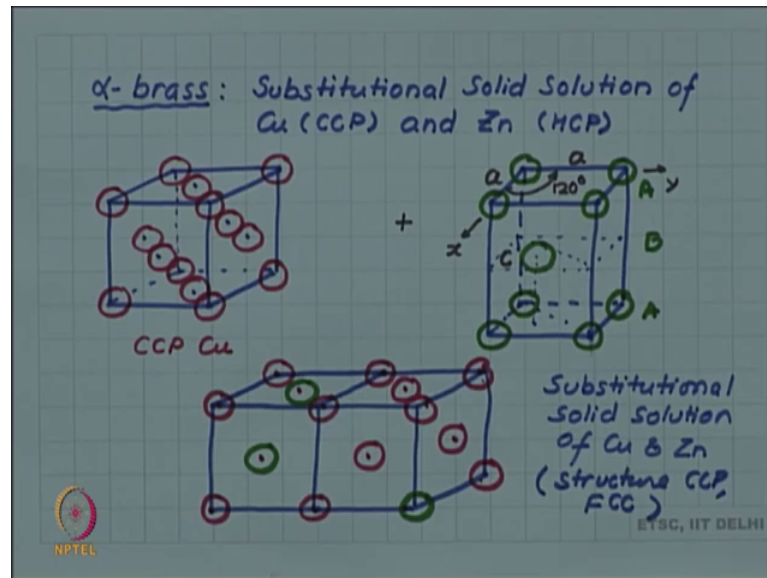 α-brass : Substitutional Solid Solution of
Cu (CCP) and Zn (HCP)
a
a
120°
y
A
x
+
C
B
A
CCP Cu
Substitutional
Solid Solution
of Cu & Zn
(Structure CCP,
FCC)
ETSC, IIT DELHI
NPTEL